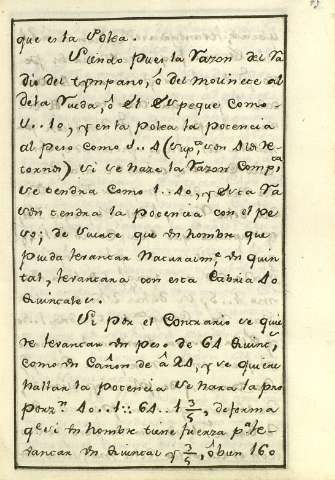 que es la Polea.
Siendo pues la razon del ra
dio del tympano, ò del molinete al
de la rueda, ò el Espeque como
1..10, y en la Polea la potencia
al peso como 1..4 (sup.to son 4 los re
tornos) si se haze la razon Comp.ta
se tendra como 1..40, y esta ra
zon tendra la potencia con el pe
so; de suerte que un hombre que
pueda levantar naturalm.e un quin
tal, levantara con esta Cabria 40
quintales.
Si por el Contrario se quie
re levantar un peso de 64 quint.s
como un Cañon de â 24, y se quiere
hallar la potencia se hara la pro
porz.n 40..1::64..1 3/5, de forma
q.e si un hombre tiene fuerza p.a le
vantar un quintal y 3/5, ò bien 160